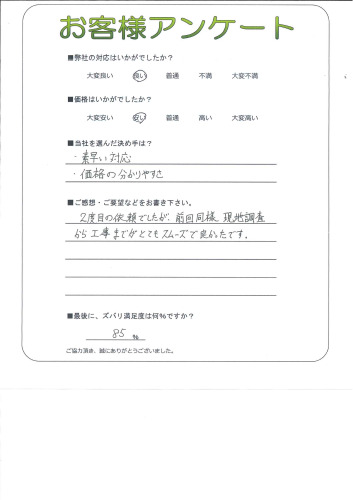 お客様アンケート
■弊社の対応はいかがでしたか?
大変良い 良い 普通 不満 大変不満
■価格はいかがでしたか?
大変安い 安い 普通 高い 大変高い
■当社を選んだ決め手は?
・素早い対応
・価格の分かりやすさ
■ご感想・ご要望などをお書き下さい。
2度目の依頼でしたが、前回同様、現地調査
から工事までがとてもスムーズで良かったです。
■最後に、ズバリ満足度は何%ですか?
85 %
ご協力頂き、誠にありがとうございました。